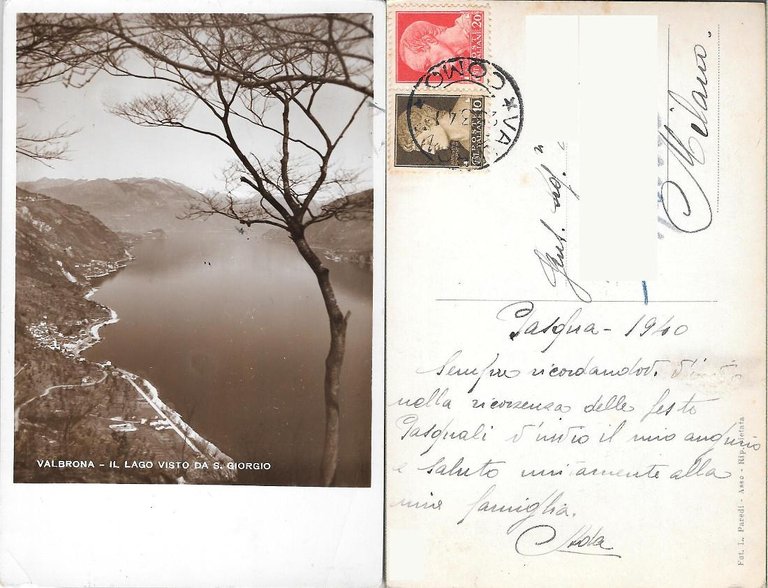 VALBRONA - IL LAGO VISTO DA S. GIORGIO
20
10
POSTE ITALIANE
COMO
Gent. Sig.
Milano.
Pasqua - 1940
Sempre ricordandovi
nella ricorrenza delle feste
Pasquali v'invio il mio augurio
e saluto unitamente alla
mia famiglia.
Ada
Fot. L. Paredi - Asso - Rip. vietata